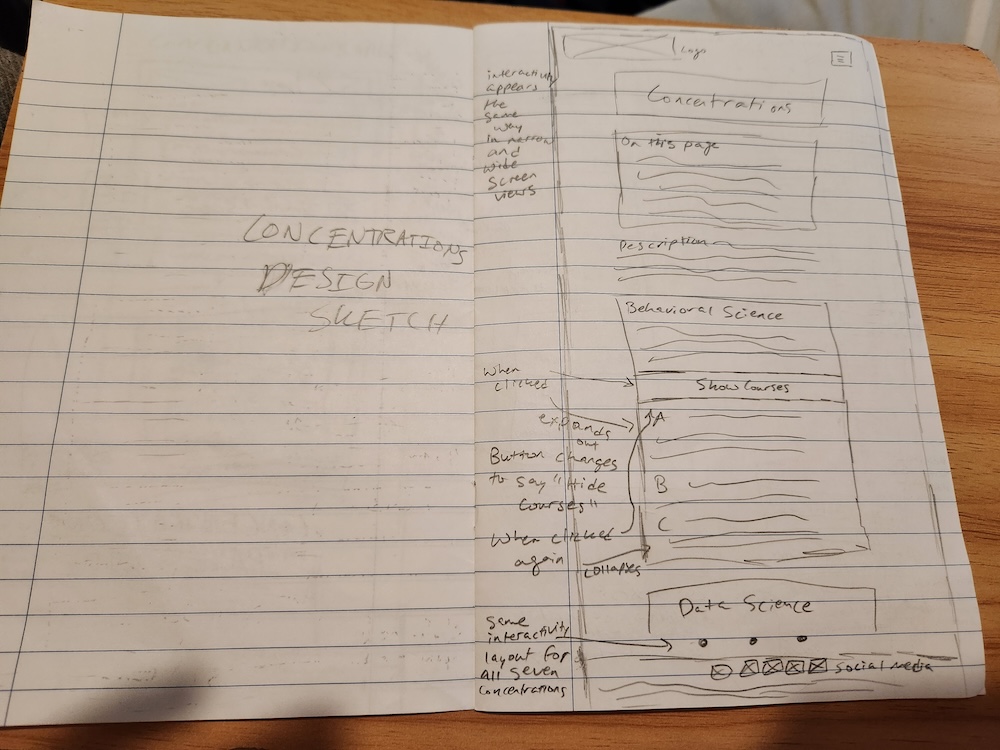 CONCENTRATIONS
DESIGN
SKETCH
interactivity
appears
the
same
way
in narrow
and
wide
screen
views
Logo
Concentrations
On this page
Description
Behavioral Science
Show Courses
When
clicked
expands
out
Button changes
to say "Hide
Courses"
When clicked
again
collapses
A
B
C
Data Science
same
interactivity
layout for
all seven
concentrations
social media